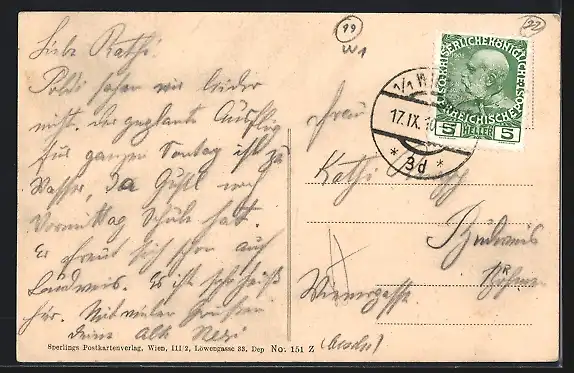 Liebe Kathi!
Poldi sehen wir leider
nicht. Der geplante Ausflug
für ganzen Sonntag ist zu
Wasser, da Gustl noch
Vormittag Schule hat.
Er freut sich schon auf
Budweis. Es ist sehr heiß
hier. Mit vielen Grüßen
Deine alte Resi
99
W1
22
Frau
Kathi
Budweis
Böhmen
Wienergasse
KAISERLICHE KÖNIGLICHE ÖSTERREICHISCHE POST
5 HELLER 5
1/1 WIEN
17.IX.10
* 3d *
Sperlings Postkartenverlag, Wien, III/2, Löwengasse 33, Dep No. 151 Z